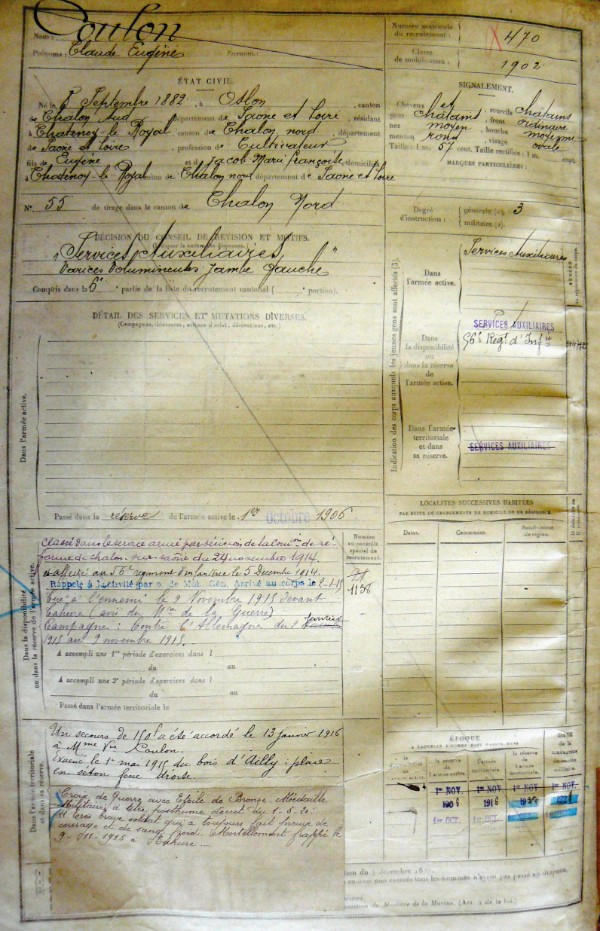 Nom : Coulon
Prénoms : Claude Eugène Surnoms :
Numéro matricule du recrutement : 470
Classe de mobilisation : 1902
ÉTAT CIVIL.
Né le 8 Septembre 1882, à Oslon, canton
de Chalon Sud, département de Saone et Loire, résidant
à Chatenoy-le-Royal, canton de Chalon nord, département
de Saone et Loire, profession de Cultivateur
fils de Eugène et de Jacob Marie Françoise, domiciliés
à Chatenoy-le Royal, canton de Chalon Nord département de Saone et Loire
N° 55 de tirage dans le canton de Chalon Nord
SIGNALEMENT.
Cheveux et sourcils châtains
yeux châtains, front ordinaire
nez moyen, bouche moyenne
menton rond, visage ovale
Taille : 1 m. 57 cent. Taille rectifiée : 1 m. cent.
MARQUES PARTICULIÈRES :
Degré d'instruction : générale 3
militaire
DÉCISION DU CONSEIL DE RÉVISION ET MOTIFS.
"Services Auxiliaires"
Varices volumineuses jambe gauche
Compris dans la 6e partie de la liste du recrutement cantonal ( portion).
DÉTAIL DES SERVICES ET MUTATIONS DIVERSES.
(Campagnes, blessures, actions d'éclat, décorations, etc.)
Dans l'armée active.
Passé dans la réserve de l'armée active le 1er octobre 1906
Indication des corps auxquels les jeunes gens sont affectés
Dans l'armée active.
Services Auxiliaires
Dans la disponibilité ou dans la réserve de l'armée active.
SERVICES AUXILIAIRES
56e Régt d'Infie
Dans l'armée territoriale et dans sa réserve.
SERVICES AUXILIAIRES
LOCALITÉS SUCCESSIVES HABITÉES
PAR SUITE DE CHANGEMENTS DE DOMICILE OU DE RÉSIDENCE
Dates. Communes.
Dans la disponibilité ou dans la réserve de l'armée active.
Classé dans le service armé par décision de la Comon de ré
forme de Chalon sur Saône du 24 novembre 1914.
et affecté au 56e régiment d'infanterie le 5 Décembre 1914.
Rappelé à l'activité par o. de Mob. Gén. Arrivé au corps le
Tué à l'ennemi le 9 Novembre 1915 devant
Tahure (avis du Mtre de la Guerre)
Campagne : Contre l'Allemagne du
1915 au 9 novembre 1915.
A accompli une 1re période d'exercices dans l
du au
A accompli une 2e période d'exercices dans l
du au
Passé dans l'armée territoriale le
Numéro au contrôle spécial du recrutement.
1138
Dans l'armée territoriale et dans sa réserve.
Un secours de 150f a été accordé le 13 janvier 1916
à Mme Vve Coulon.
Evacué le 1er mai 1915 du bois d'Ailly : plaie
en séton fesse droite
Croix de Guerre avec Etoile de Bronze Médaille
Militaire à titre posthume décret du 1.5.20.
très brave soldat qui a toujours fait preuve de
courage et de sang froid. Mortellement frappé le
9-011-1915 à Tahure
ÉPOQUE
1er NOV. 1er NOV. 1er NOV. 1er NOV.
1906 1916
1er OCT. 1er OCT.